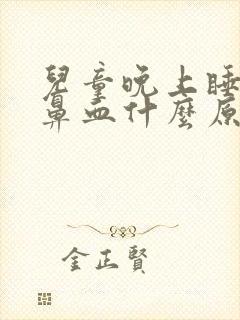 兒童晚上睡
鼻血什麼原
金正賢